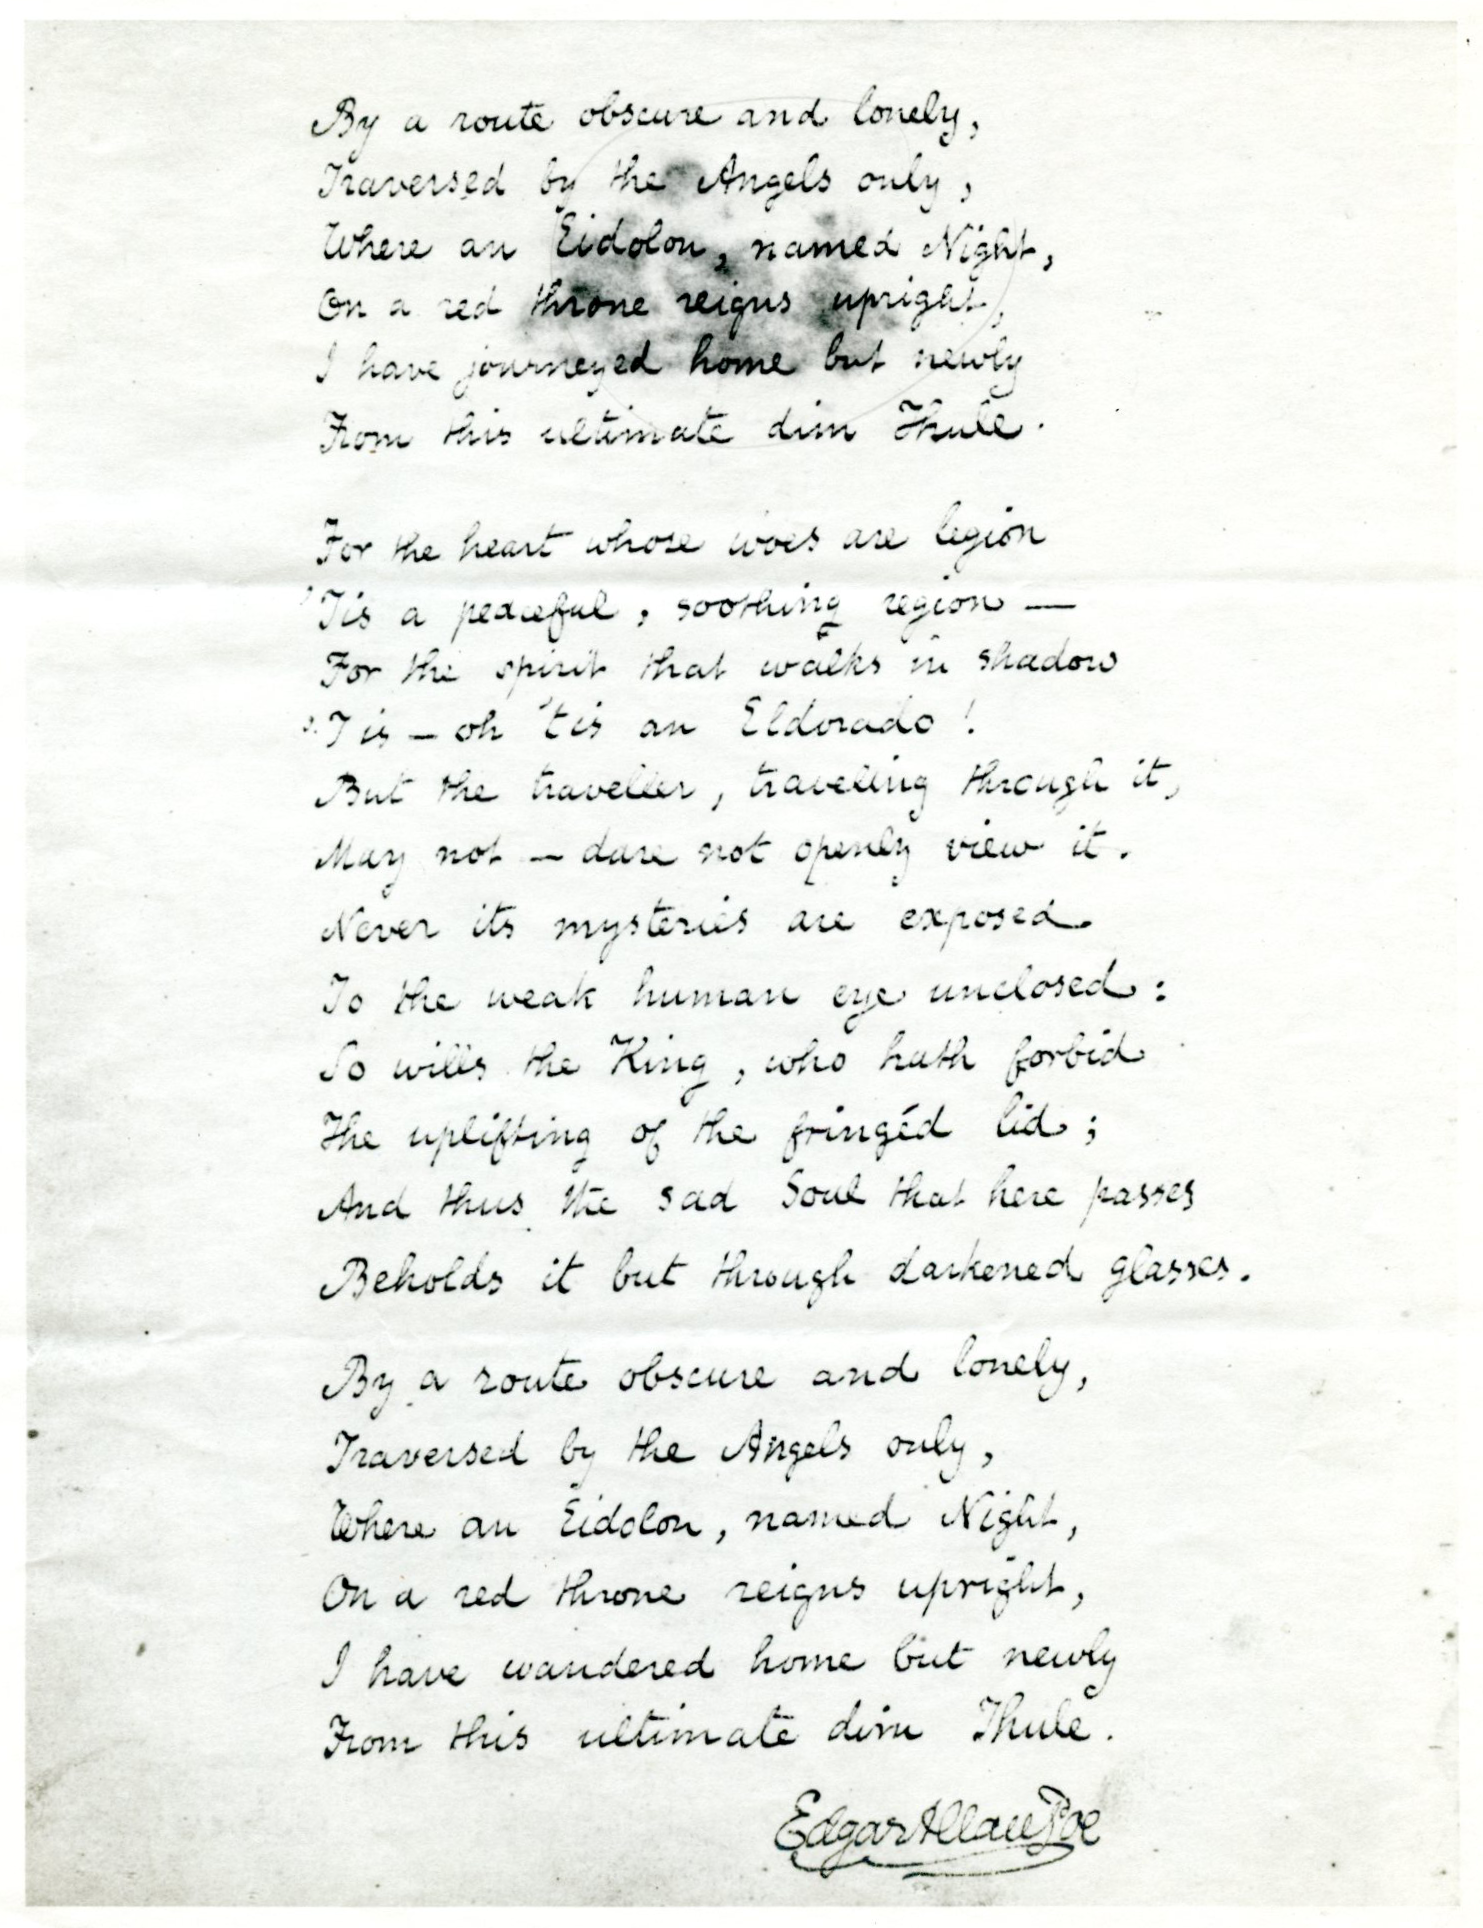 By a route obscure and lonely,
Traversed by the Angels only,
Where an Eidolon, named Night,
On a red throne reigns upright,
I have journeyed home but newly
From this ultimate dim Thule.
For the heart whose woes are legion
'Tis a peaceful, soothing region —
For the spirit that walks in shadow
'Tis — oh 'tis an Eldorado!
But the traveller, traveling through it,
May not — dare not openly view it.
Never its mysteries are exposed
To the weak human eye unclosed:
So wills the King, who hath forbid
The uplifting of the fringéd lid;
And thus the sad Soul that here passes
Beholds it but through darkened glasses.
By a route obscure and lonely,
Traversed by the Angels only,
Where an Eidolon, named Night,
On a red throne reigns upright,
I have wandered home but newly
From this ultimate dim Thule.
Edgar Allan Poe